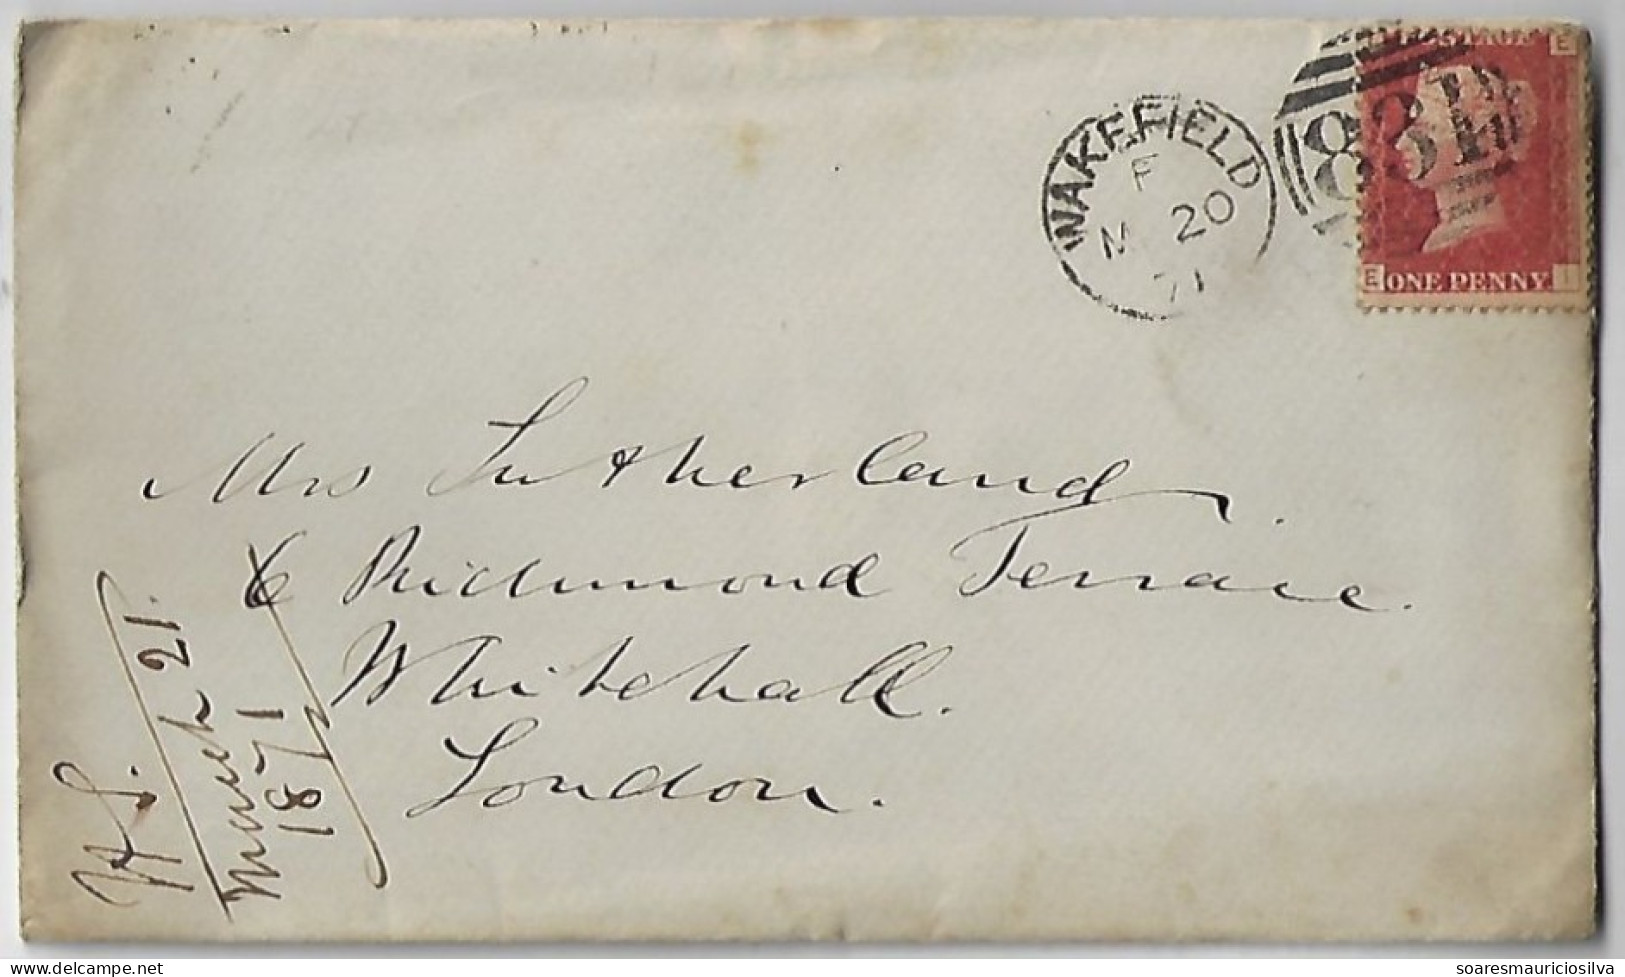 POSTAGE
E
831
WAKEFIELD
F
M 20
71
E ONE PENNY I
Mrs Sutherland.
6 Richmond Terrace.
Whitehall.
London.
H S.
March 21.
1871
delcampe.net
soaresmauriciosilva